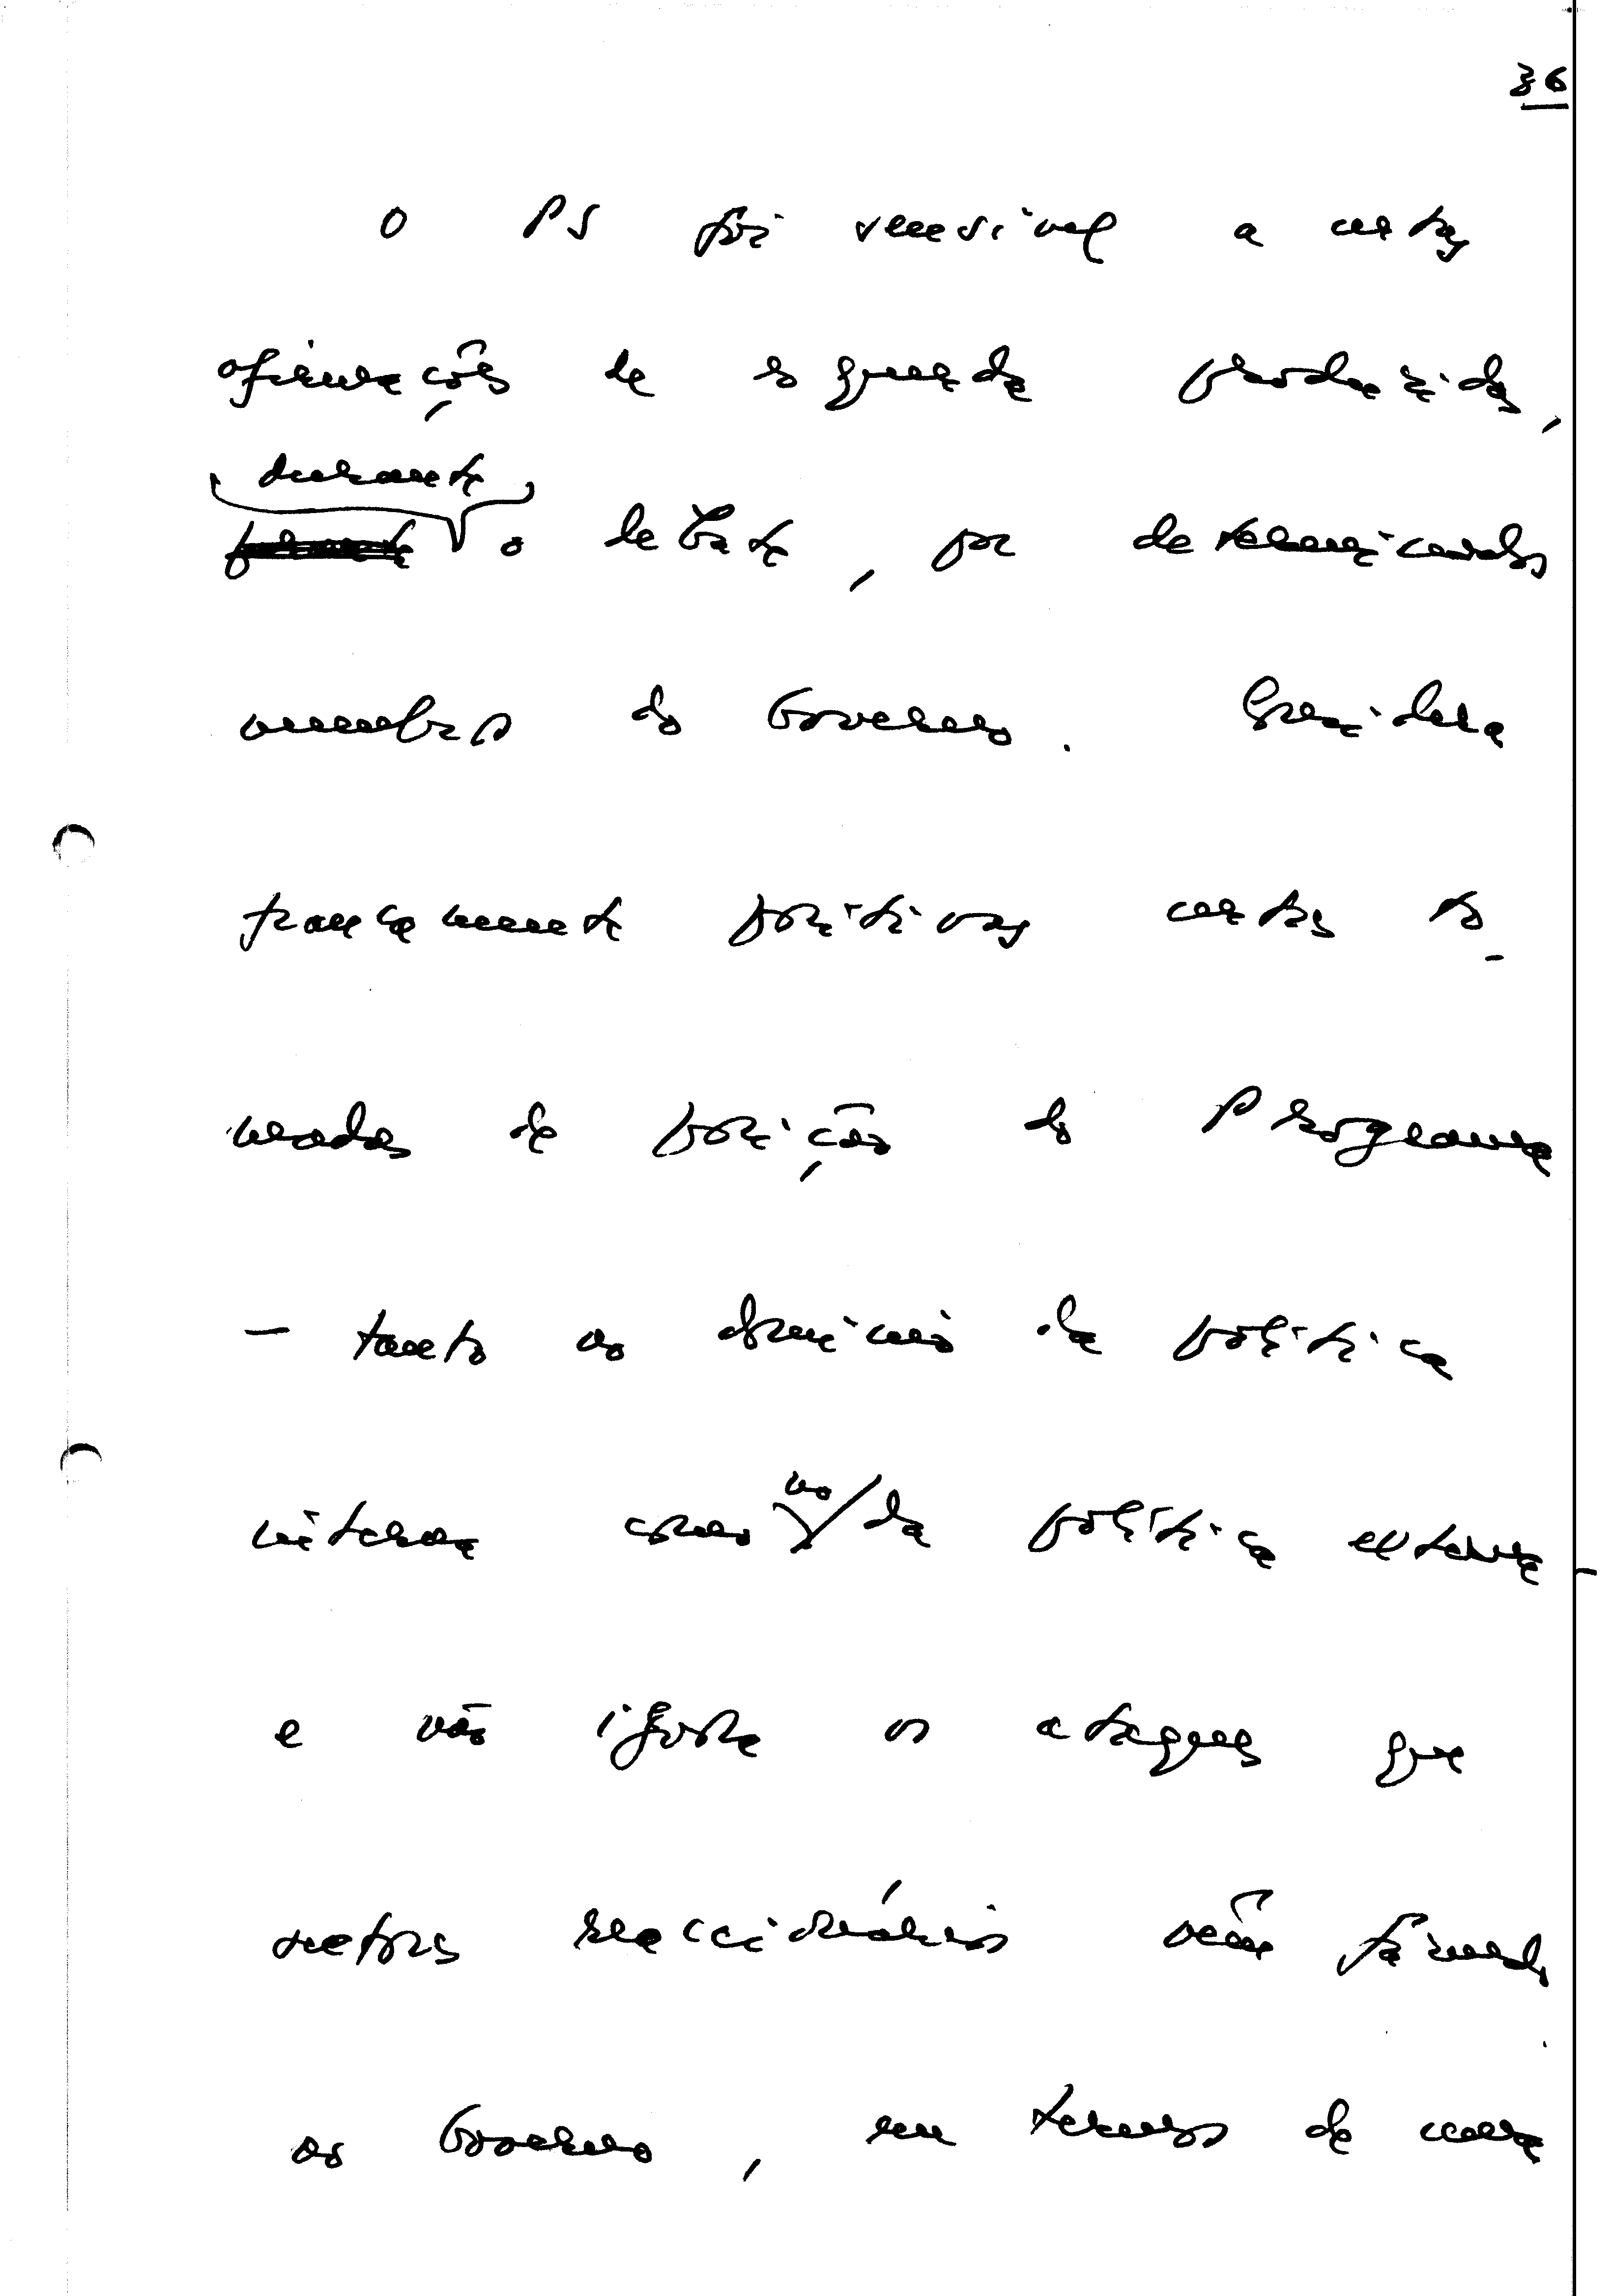 36
O PS foi sensível a certas
afirmações de esquerda produzidas,
durante
o debate, por determinados
membros do Governo. Considera
francamente positivas certas to-
madas de posição do Programa
— tanto no domínio da política
interna como no da política externa —
e não ignora os ataques que
sectores reaccionários vêm fazendo
ao Governo, em termos de uma